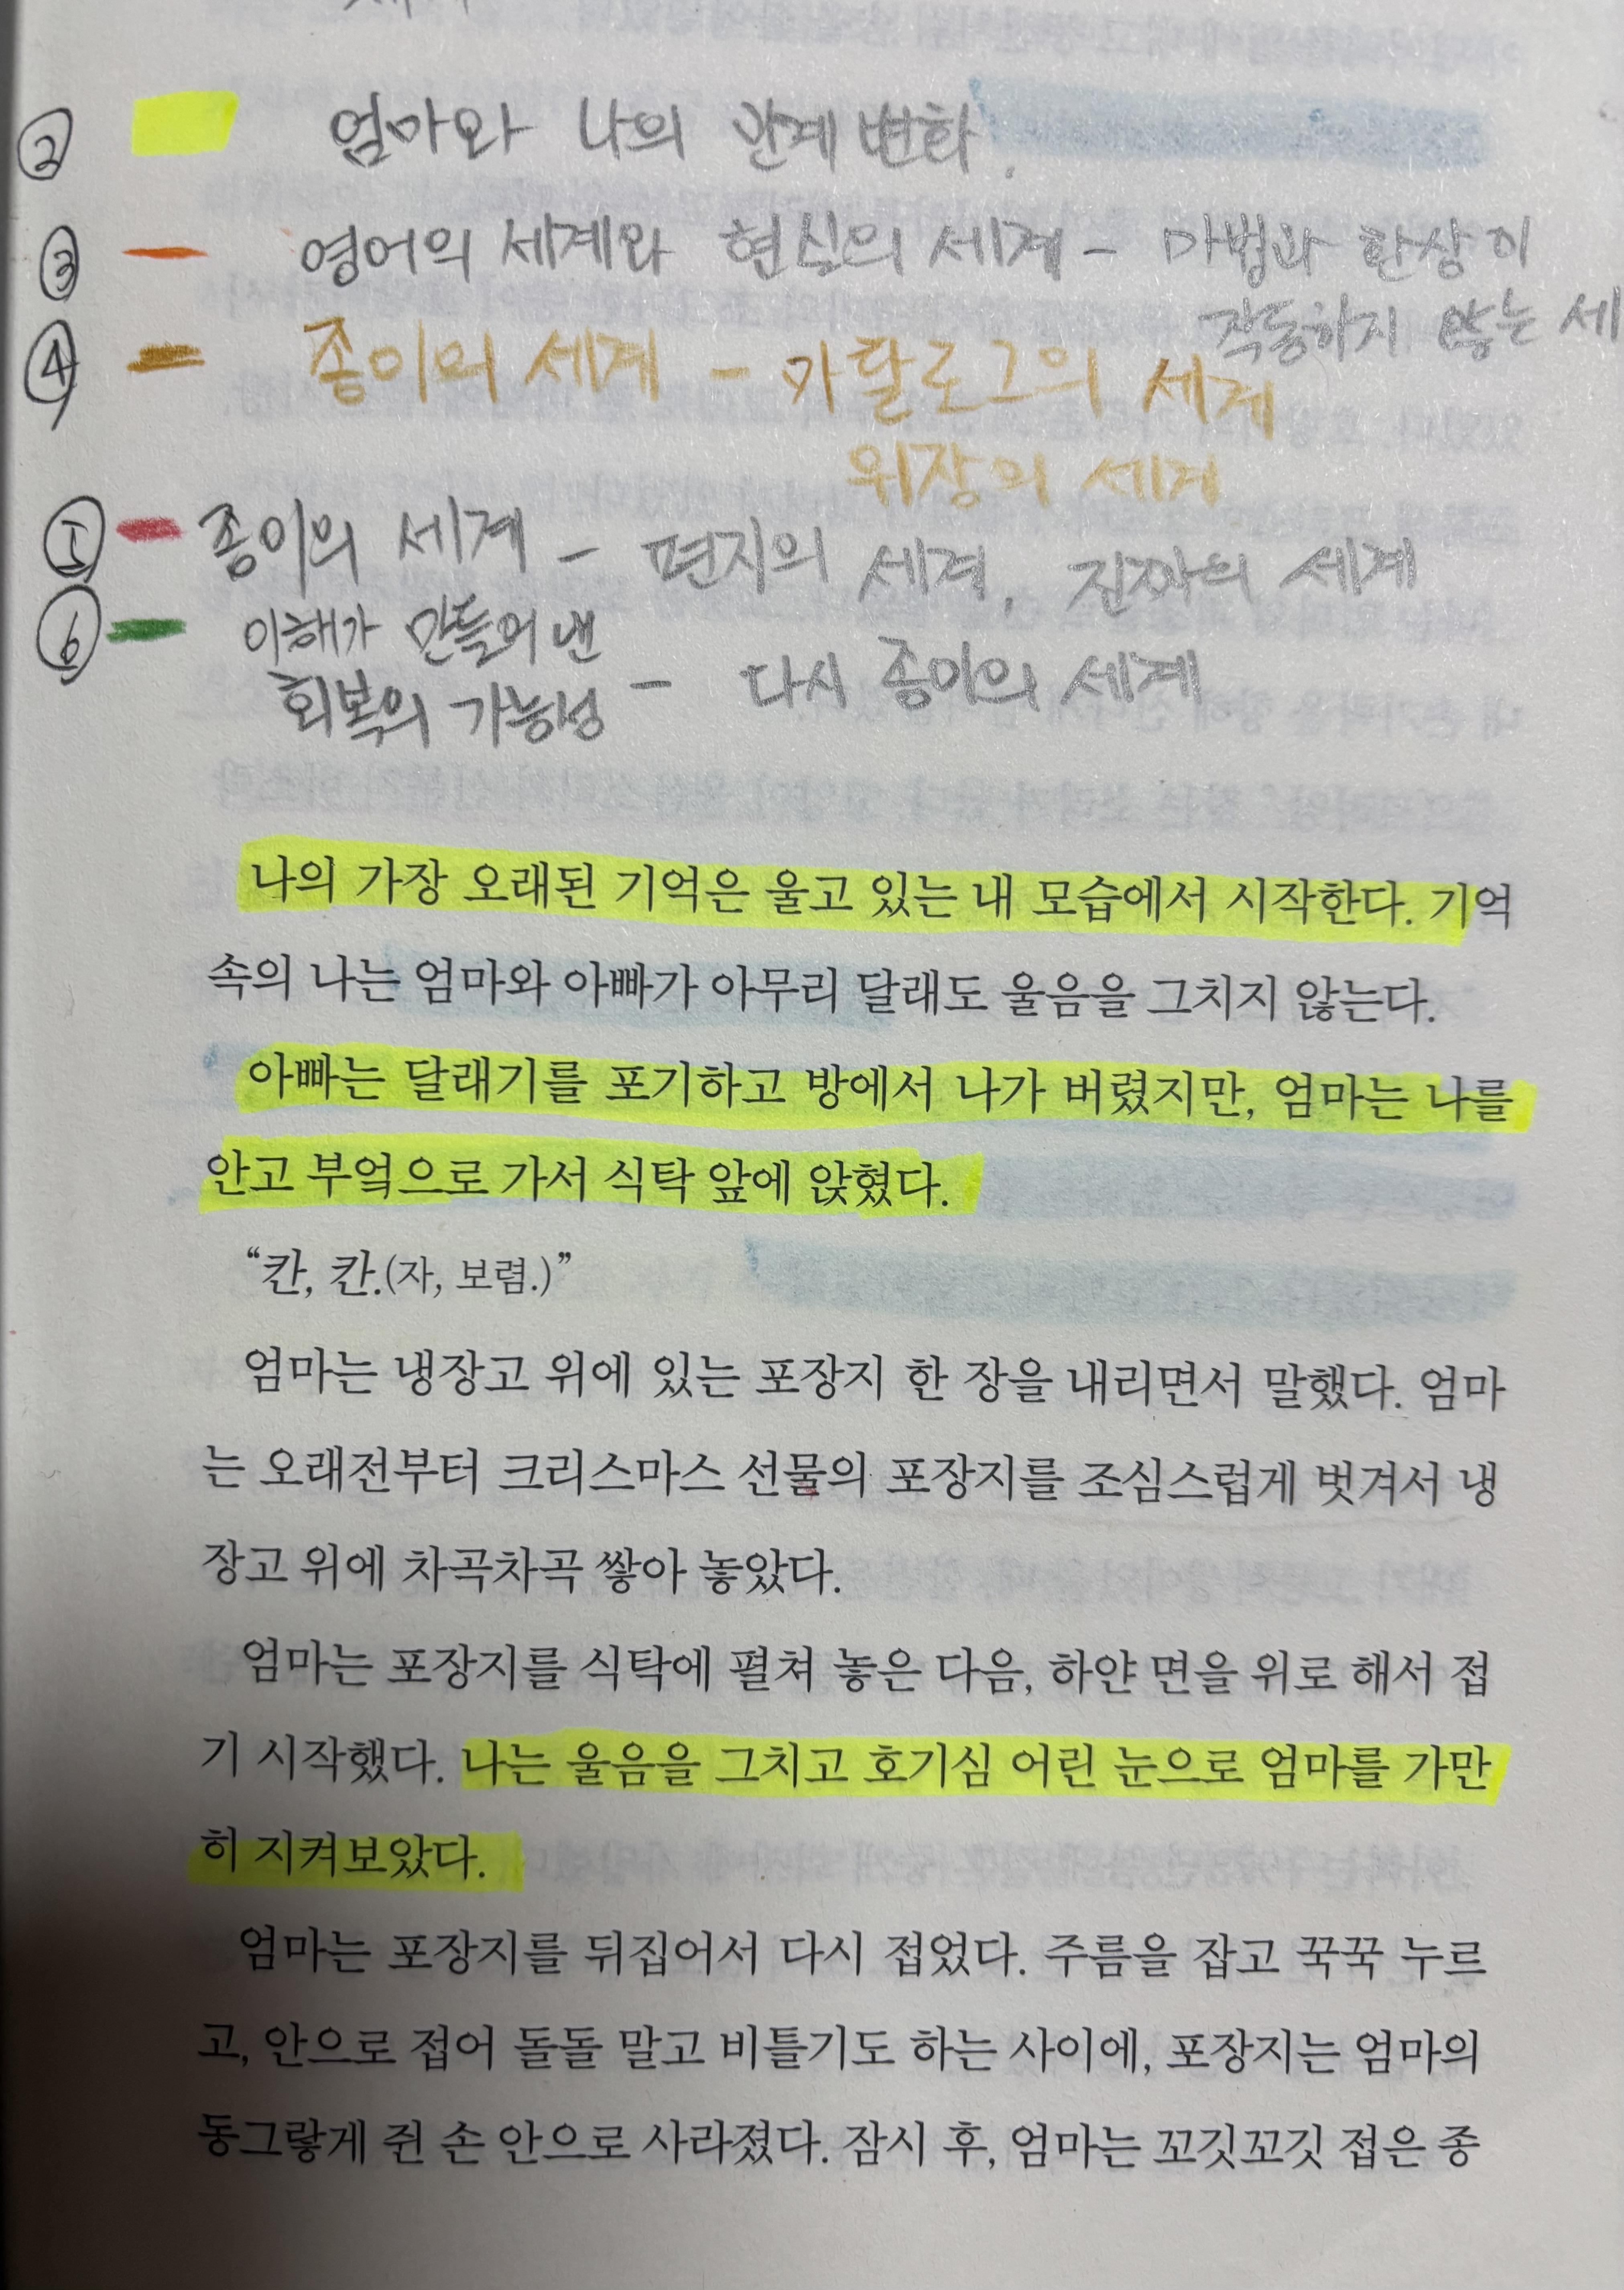 ② 엄마와 나의 관계 변화.
③ 영어의 세계와 현실의 세계 - 마법과 환상이
작동하지 않는 세
④ 종이의 세계 - 카탈로그의 세계
위장의 세계
⑤ 종이의 세계 - 편지의 세계, 진짜의 세계
⑥ 이해가 만들어 낸
회복의 가능성 - 다시 종이의 세계
나의 가장 오래된 기억은 울고 있는 내 모습에서 시작한다. 기억
속의 나는 엄마와 아빠가 아무리 달래도 울음을 그치지 않는다.
아빠는 달래기를 포기하고 방에서 나가 버렸지만, 엄마는 나를
안고 부엌으로 가서 식탁 앞에 앉혔다.
“칸, 칸.(자, 보렴.)”
엄마는 냉장고 위에 있는 포장지 한 장을 내리면서 말했다. 엄마
는 오래전부터 크리스마스 선물의 포장지를 조심스럽게 벗겨서 냉
장고 위에 차곡차곡 쌓아 놓았다.
엄마는 포장지를 식탁에 펼쳐 놓은 다음, 하얀 면을 위로 해서 접
기 시작했다. 나는 울음을 그치고 호기심 어린 눈으로 엄마를 가만
히 지켜보았다.
엄마는 포장지를 뒤집어서 다시 접었다. 주름을 잡고 꾹꾹 누르
고, 안으로 접어 돌돌 말고 비틀기도 하는 사이에, 포장지는 엄마의
동그랗게 쥔 손 안으로 사라졌다. 잠시 후, 엄마는 꼬깃꼬깃 접은 종